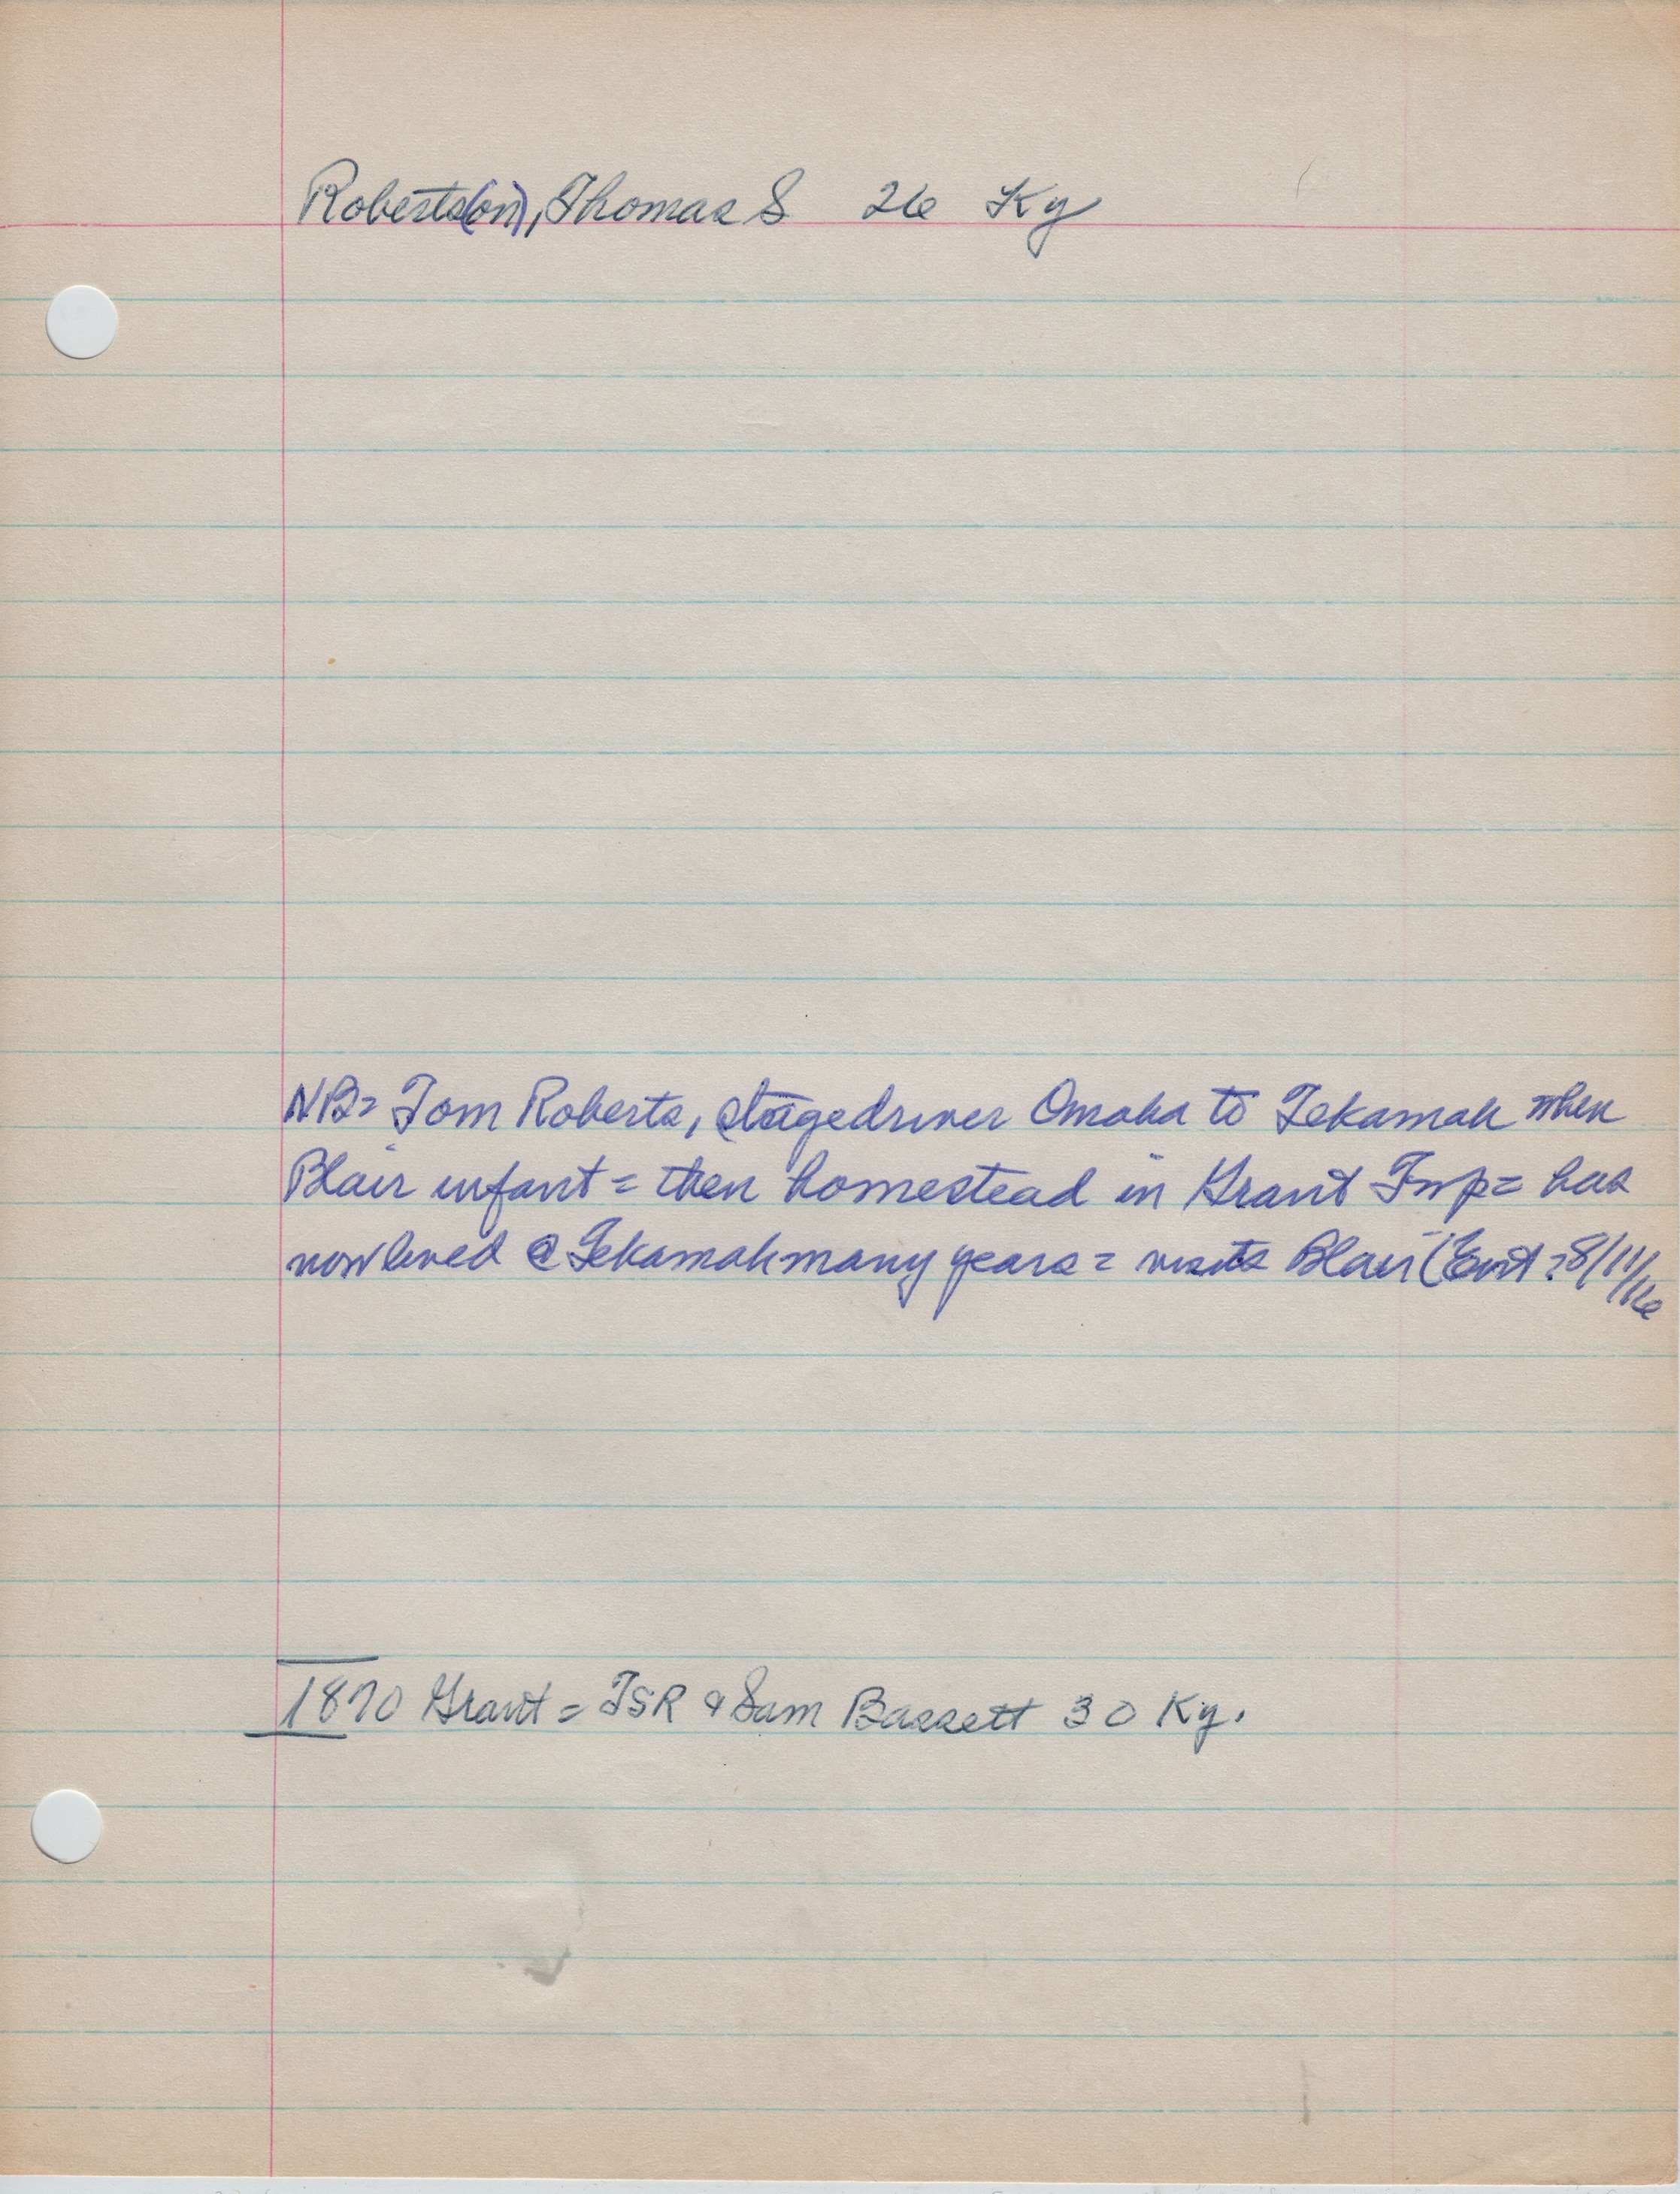 Roberts(on), Thomas S 26 Ky
NB= Tom Roberts, stagedriver Omaha to Tekamah when
Blair infant = then homestead in Grant Twp = has
now lived @ Tekamah many years = visits Blair (Ent : 8/11/16
1870 Grant = TSR & Sam Bassett 30 Ky.